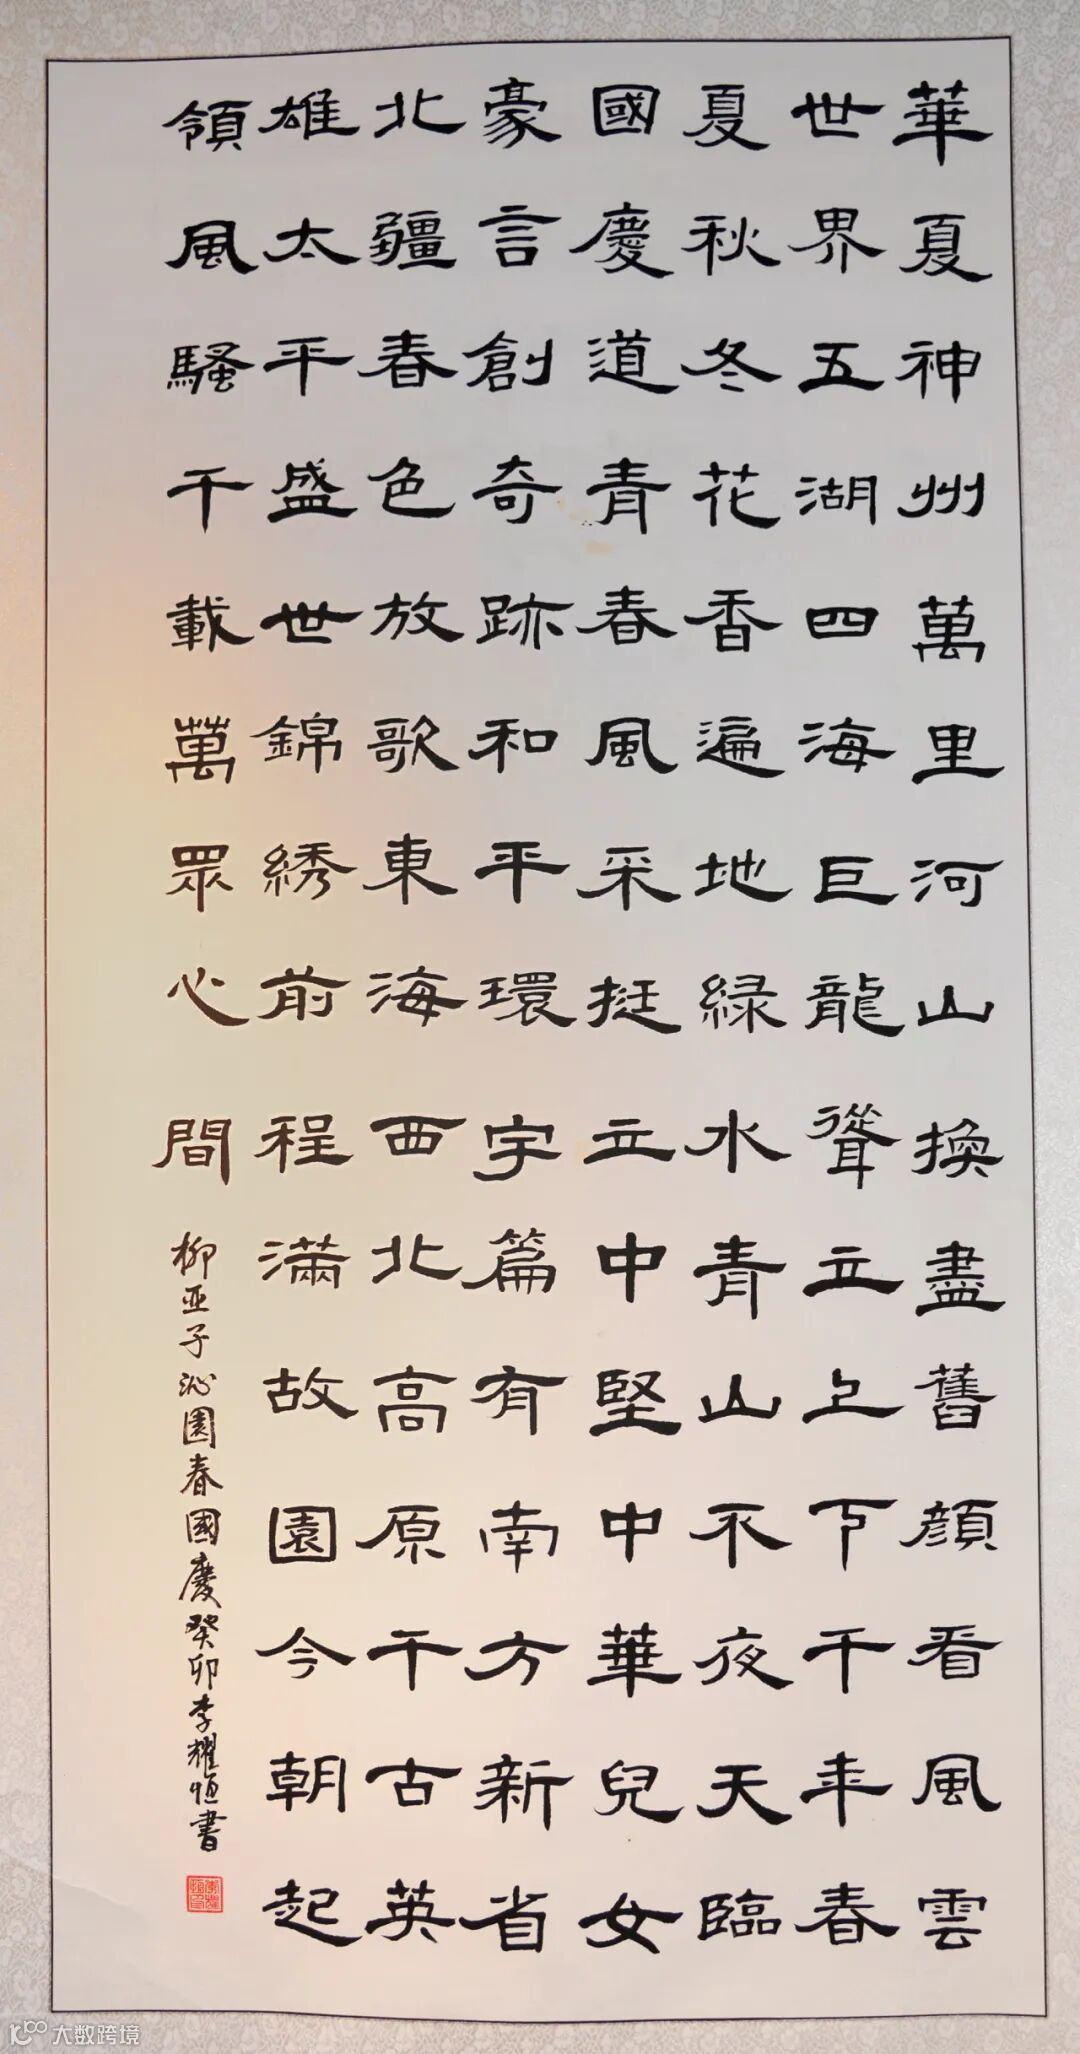 華夏神州萬里河山換盡舊顏看風雲
世界五湖四海巨龍聳立上下千年春
夏秋冬花香遍地緑水青山不夜天臨
國慶道青春風采挺立中堅中華兒女
豪言創奇跡和平環宇篇有南方新省
北疆春色放歌東海西北高原千古英
雄太平盛世錦綉前程滿故園今朝起
領風騷千載萬眾心間
柳亚子沁園春國慶癸卯李耀恒書
大数跨境